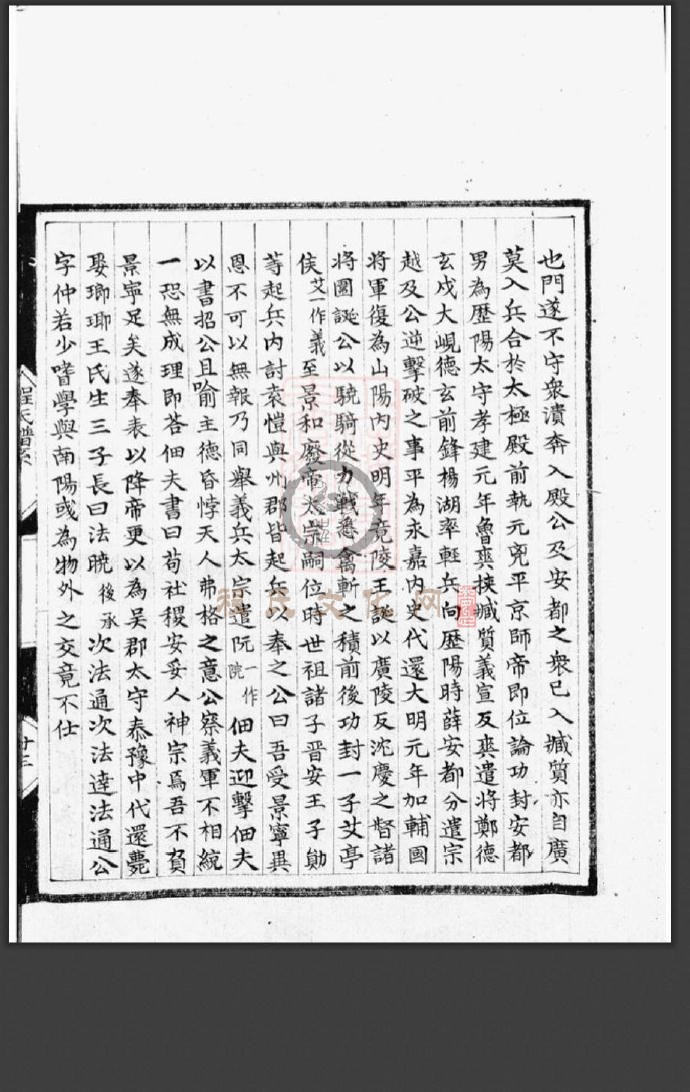 也門遂不守衆潰奔入殿公及安都之衆已入臧質亦自廣
莫入兵合於太極殿前執元兇平京師帝即位論功封安都
男為歷陽太守孝建元年魯爽挾臧質義宣反爽遣將鄭德
玄戍大峴德玄前鋒楊湖率輕兵向歷陽時薛安都分遣宗
越及公逆擊破之事平為永嘉内史代還大明元年加輔國
將軍復為山陽内史明年竟陵王誕以廣陵反沈慶之督諸
將圍誕公以驍騎從力戰悉禽斬之積前後功封一子艾亭
侯艾一作義至景和廢帝太宗嗣位時世祖諸子晉安王子勛
等起兵内討袁愷與州郡皆起兵以奉之公曰吾受景寧異
恩不可以無報乃同舉義兵太宗遣阮一作院佃夫迎擊佃夫
以書招公且喻主德昏悖天人弗格之意公察義軍不相統
一恐無成理即荅佃夫書曰苟社稷安妥人神宗焉吾不負
景寧足矣遂奉表以降帝更以為吳郡太守泰豫中代還薨
娶瑯琊王氏生三子長曰法曉後承次法通次法達法通公
字仲若少嗜學與南陽或為物外之交竟不仕
程氏譜系
廿三
程氏文化网